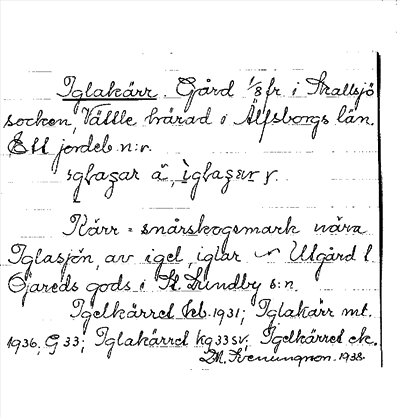 Iglakärr. Gård 1/8 fr. i Skallsjö
socken, Vättle härad i Älfsborgs län.
Ett jordeb. n:r.
Kärr = snårskogsmark nära
Iglasjön, av igel, iglar ~ Utgård t.
Öjareds gods i St. Lundby s:n.
Igelkärret Jeb. 1931; Iglakärr mt.
1936, G 33; Iglakärret kg 33 sv; Igelkärret ek.
1938